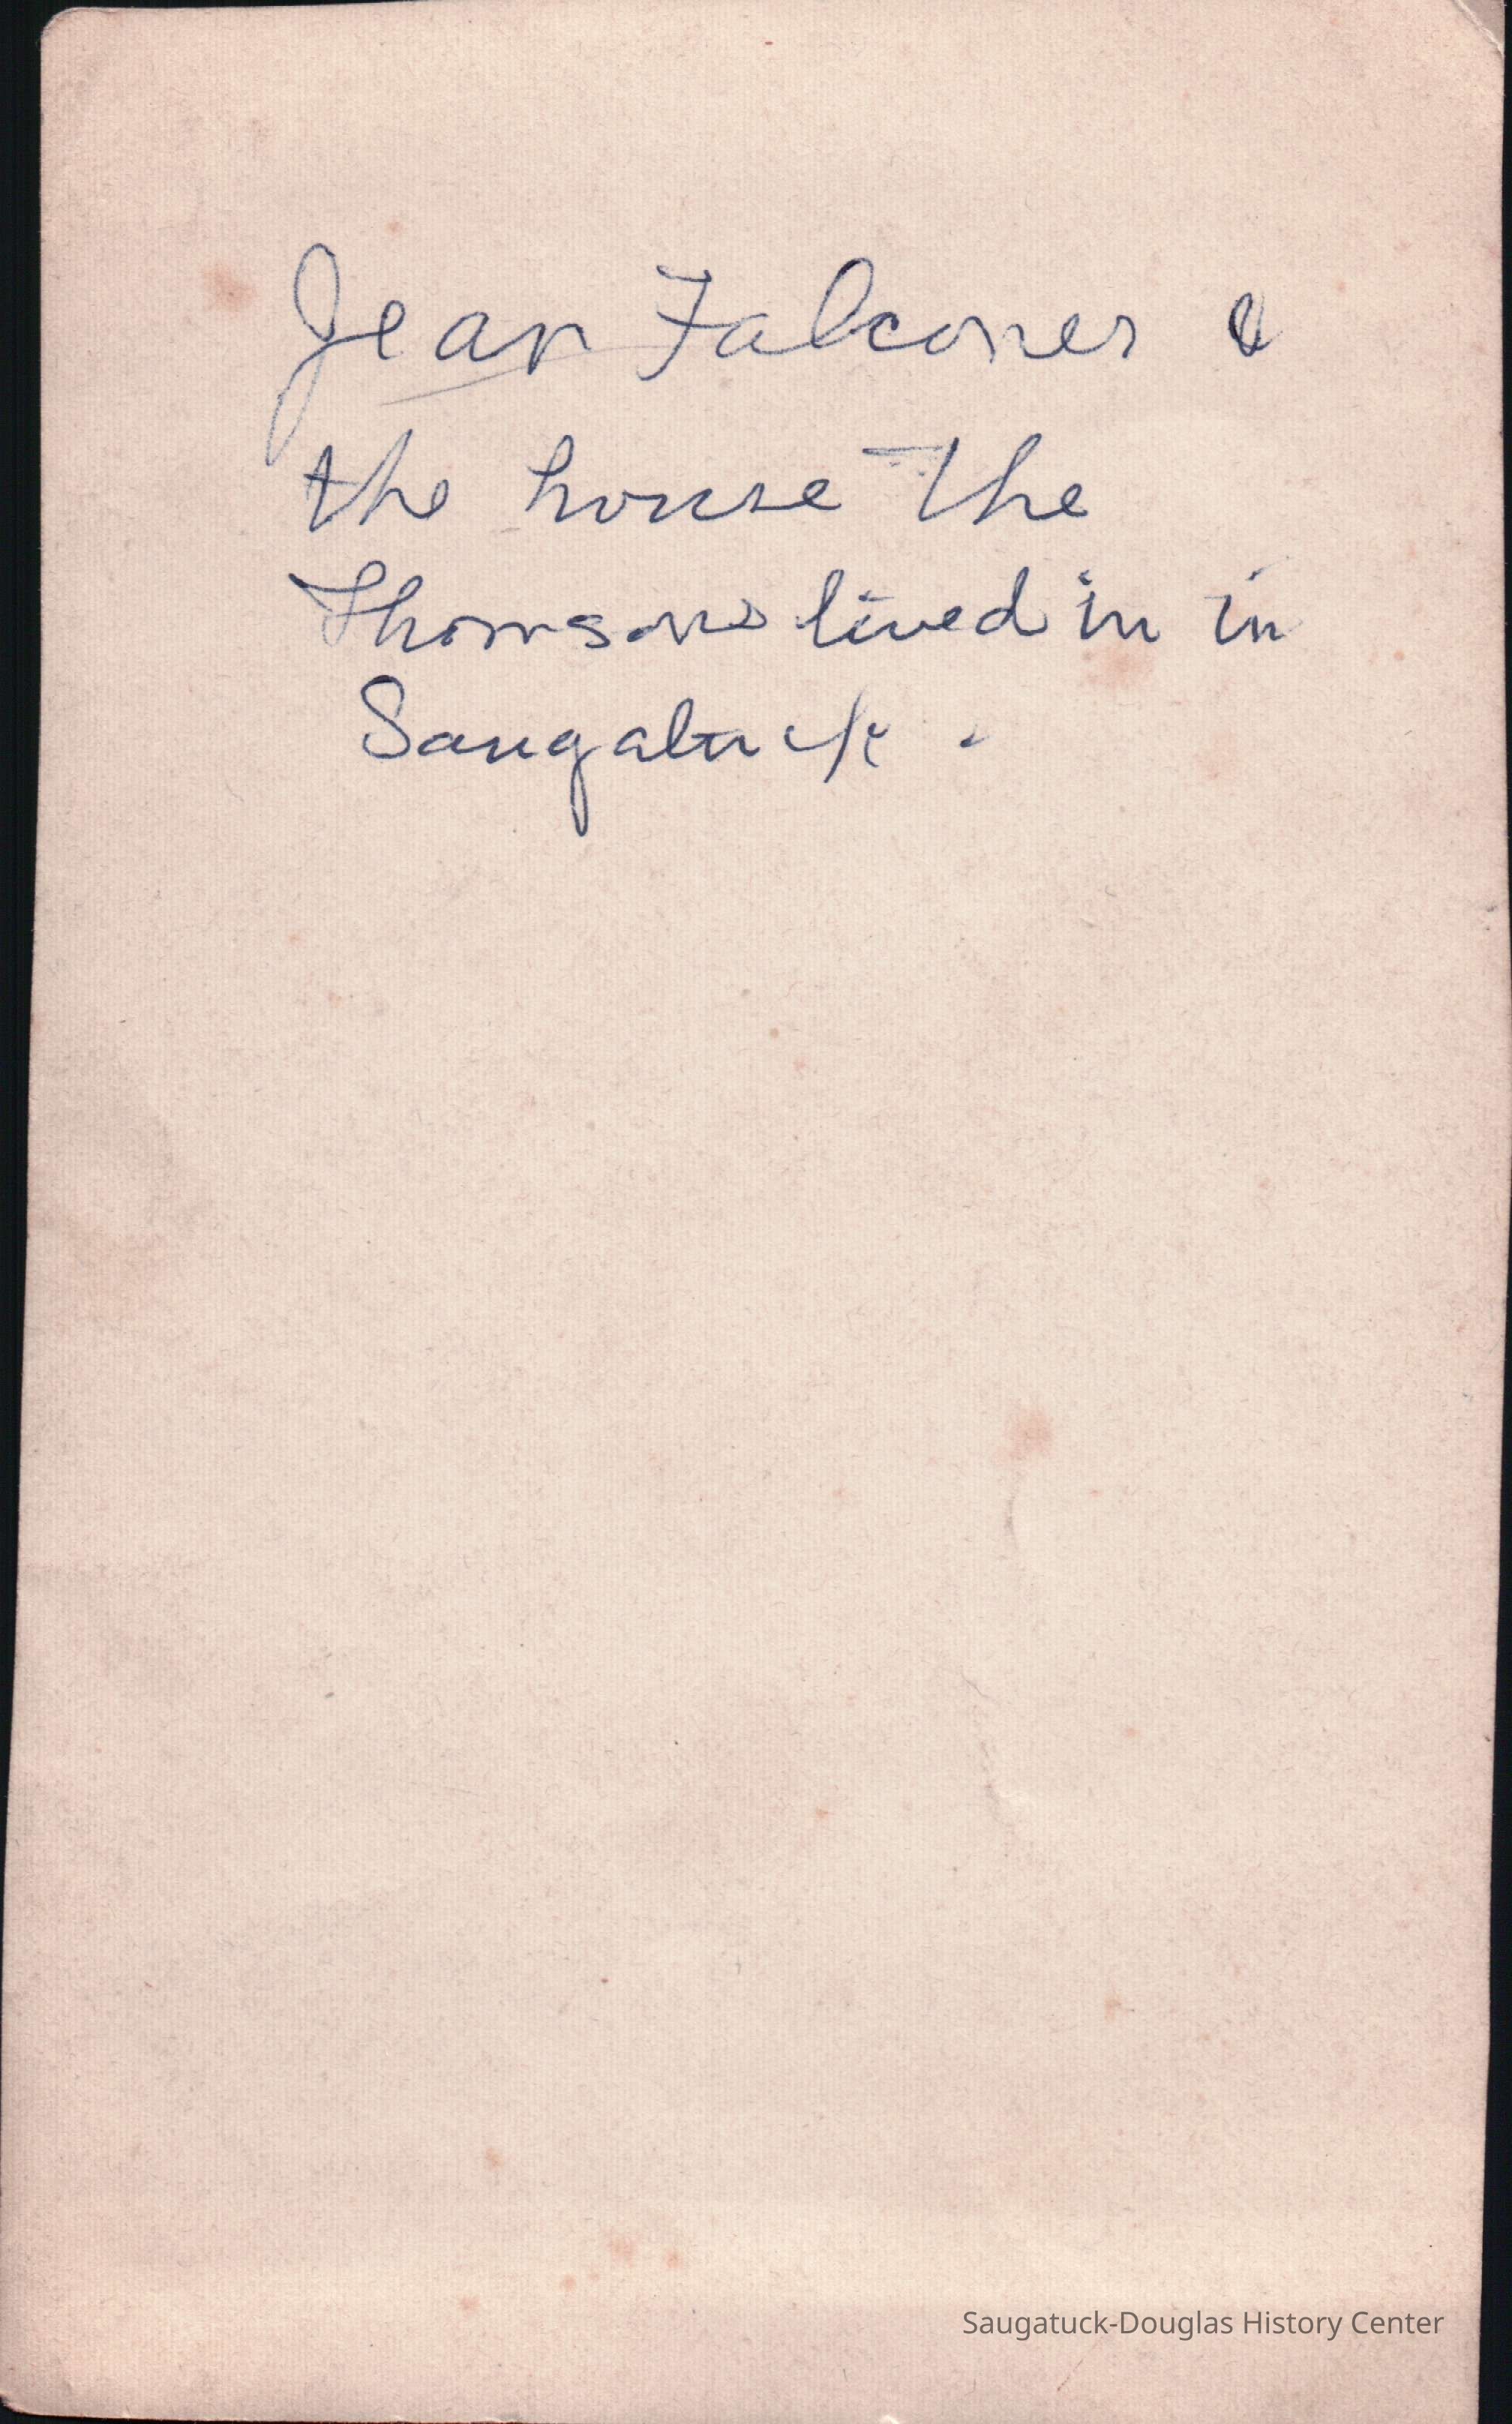 Jean Falconer &
the house The
Thomsons lived in in
Saugatuck .
Saugatuck-Douglas History Center